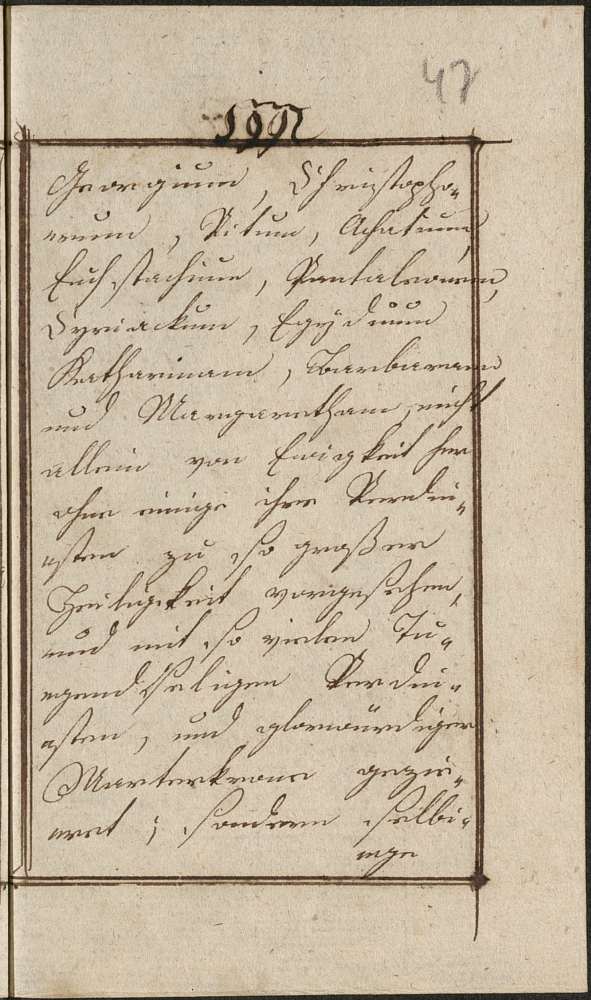 47
Georgium, Christopho„
„rum, Vitum, Achatium,
Euchstachium, Pantaleonem,
Cyriackum, Egydium
Katharinam, Barbaram
und Margaretham, nicht
allein von Ewigkeit her
ohne einige ihre Verdin„
„sten zu so großer
Heiligkeit vorgesehen,
und mit so vielen Tu„
„gendseligen Verdin„
„sten, und glorwürdiger
Marterkrone gezie„
„ret; sondern selbi„
„ge